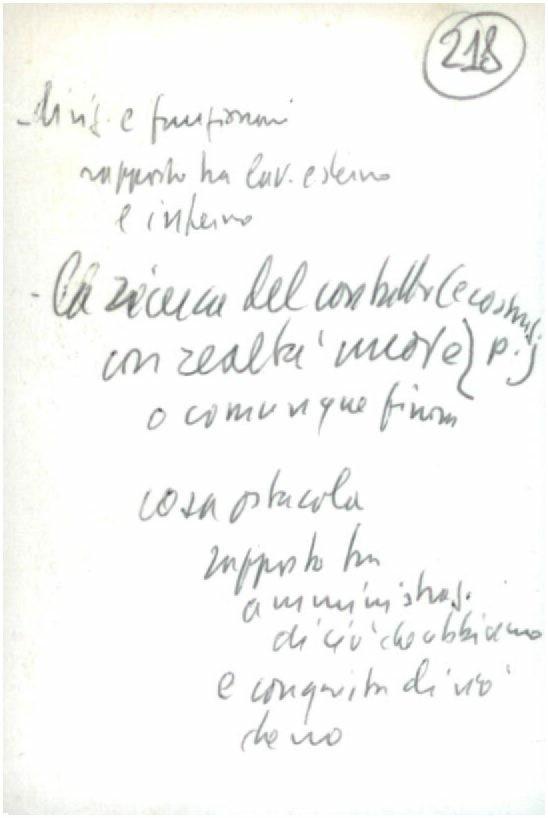 218
- divis. e funzioni
rapporto tra lav. esterno
e interno
- la ricerca del contatto (e costruz.
con realtà nuove) p.
o comunque
cosa ostacola
rapporto tra
amministraz.
di ciò che abbiamo
e conquista di ciò
che no